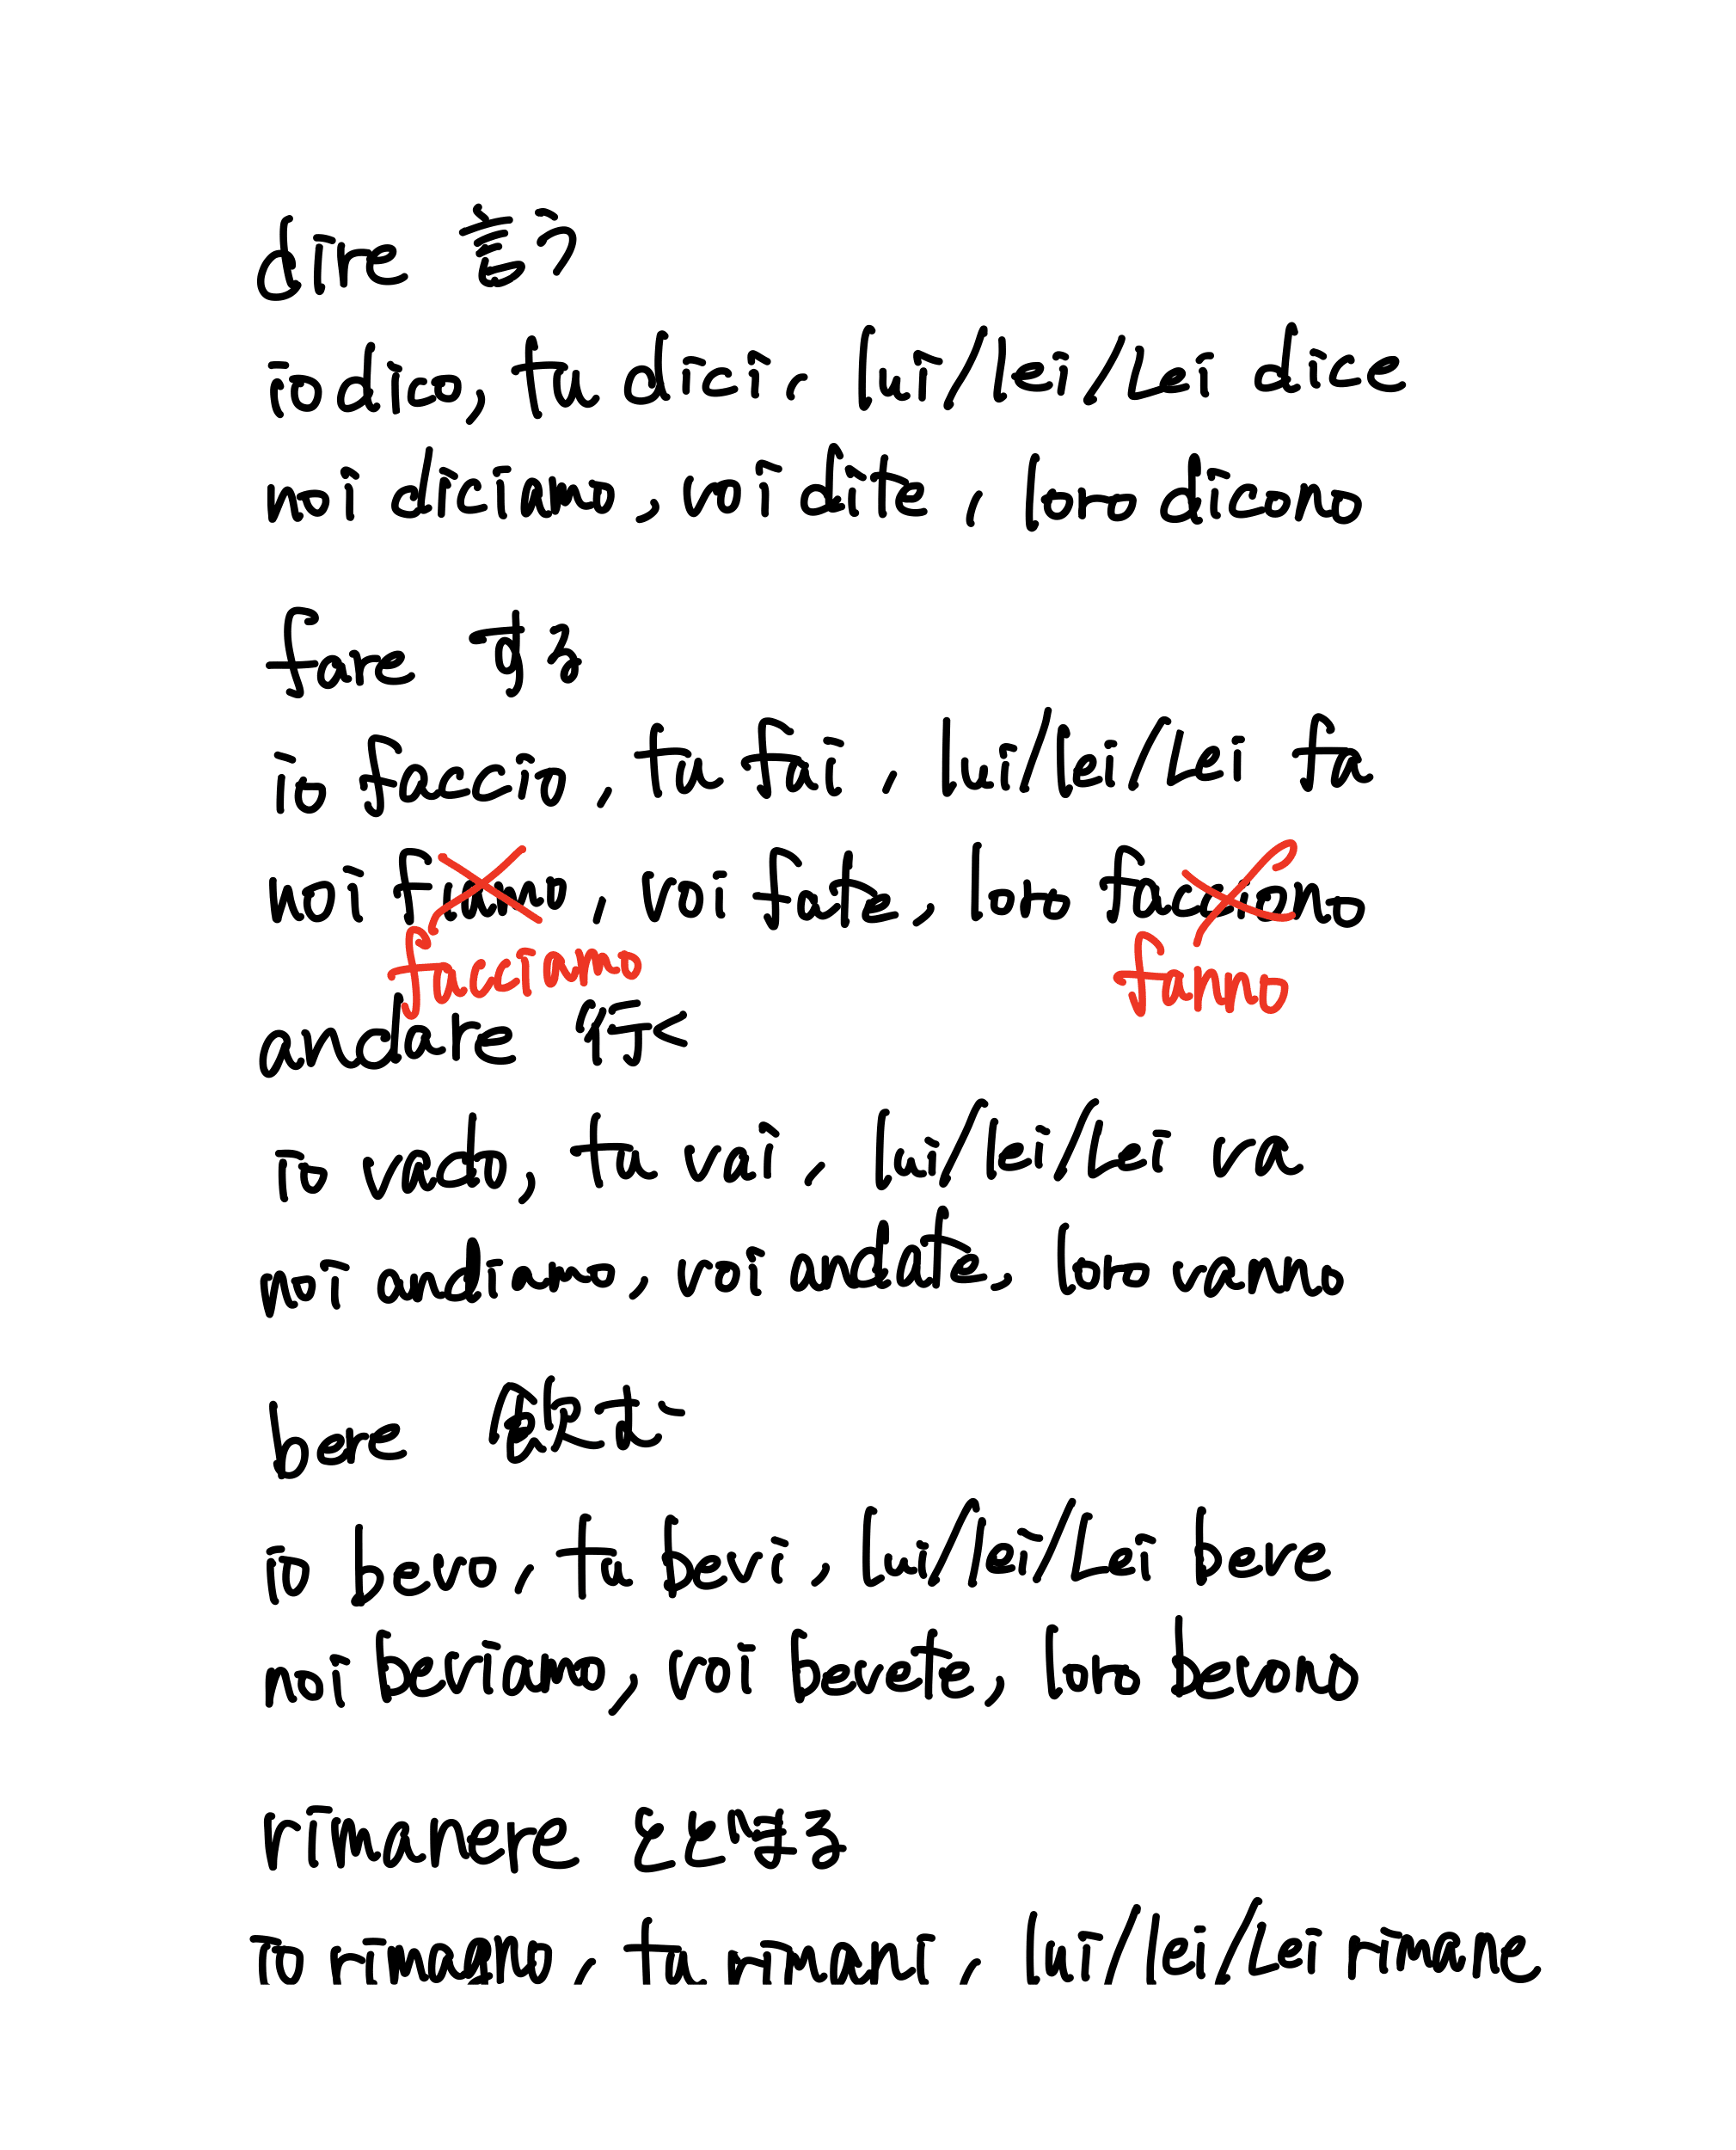 dire 言う
io dico, tu dici, lui/lei/Lei dice
noi diciamo, voi dite, loro dicono
fare する
io faccio, tu fai, lui/lei/Lei fa
noi fiamo, voi fate, loro facciono
facciamo fanno
andare 行く
io vado, tu vai, lui/lei/Lei va
noi andiamo, voi andate, loro vanno
bere 飲む
io bevo, tu bevi, lui/lei/Lei beve
noi beviamo, voi bevete, loro bevono
rimanere とどまる
io rimango, tu rimani, lui/lei/Lei rimane